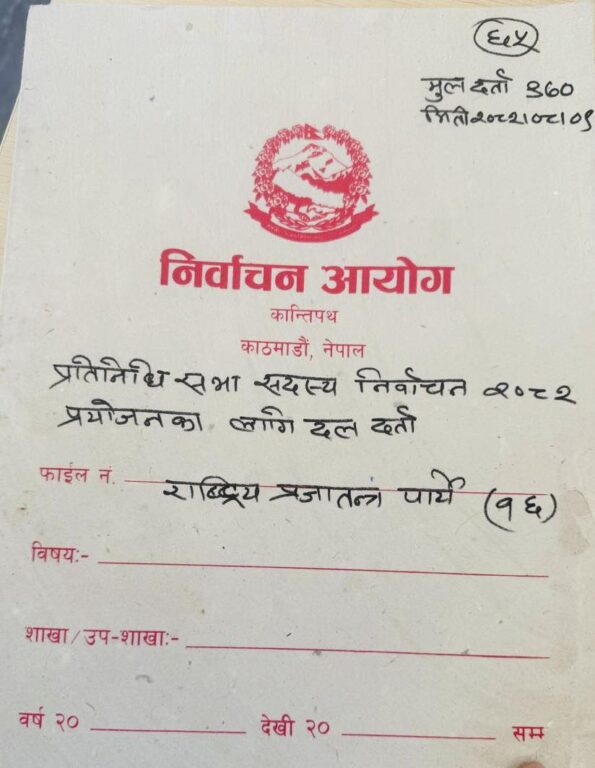 ६५
मुल दर्ता ३६०
मिती २०८२।०८।०९
निर्वाचन आयोग
कान्तिपथ
काठमाडौं, नेपाल
प्रतिनिधि सभा सदस्य निर्वाचन २०८२
प्रयोजनका लागि दल दर्ता
फाईल नं.
राष्ट्रिय प्रजातन्त्र पार्टी (१६)
विषयः-
शाखा/उप-शाखाः-
वर्ष २० देखी २० सम्म